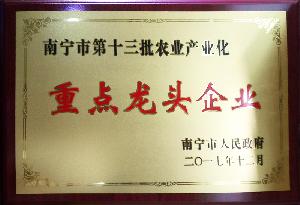 南宁市第十三批农业产业化
重点龙头企业
南宁市人民政府
二〇一七年十二月